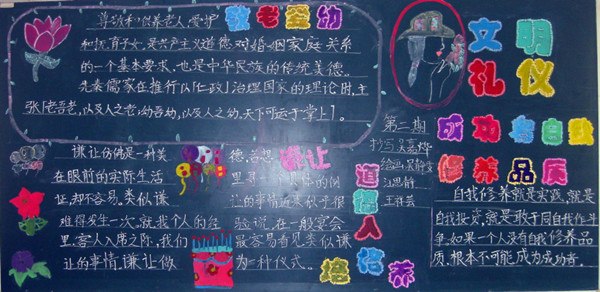 敬老爱幼
尊敬和供养老人,爱护
和抚育子女,是共产主义道德对婚姻家庭关系
的一个基本要求,也是中华民族的传统美德。
先秦儒家在推行以[仁政]治理国家的理论时,主
张[老吾老,以及人之老;幼吾幼,以及人之幼,天下可运于掌上]。
文明
礼仪
谦让
谦让仿佛是一种美德
在眼前的实际生活
证却不容易。类似谦让的事情近来似乎很
难得发生一次。就我个人的经验说,在一般宴会
里,客人入席之际,我们最容易看见类似谦
让的事情。谦让做为一种仪式。
道德人
培养
第二期
抄写:吴嘉烨
绘画:吴静雯
汪思静
王祥芸
成功者自我
修养品质
自我修养就是实践,就是
自我投资,就是敢于同自我作斗
争。如果一个人没有自我修养品
质,根本不可能成为成功者。